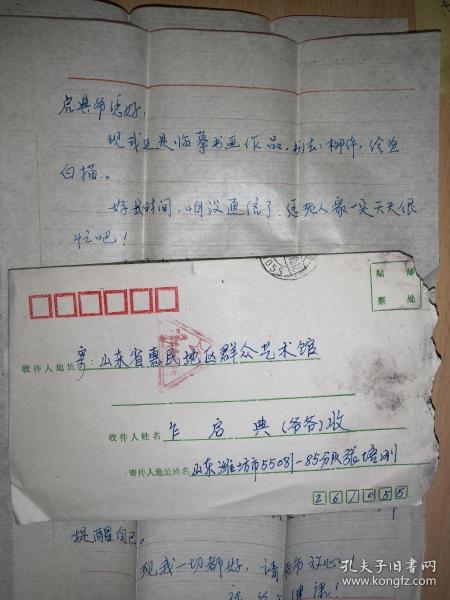 启典爷您好,
现我还是临摹书画作品,书法:柳体,绘画
白描。
好长时间,咱没通信了 您老人家一定天天很
忙吧!
055
贴 邮
票 处
收件人地址 寄:山东省惠民地区群众艺术馆
收件人姓名 乍 启 典(爷爷)收
寄件人地址姓名 山东潍坊市55081-85分队张培刚
261055
提醒自己。
现我一切都好,请爷爷放心!
孔夫子旧书网